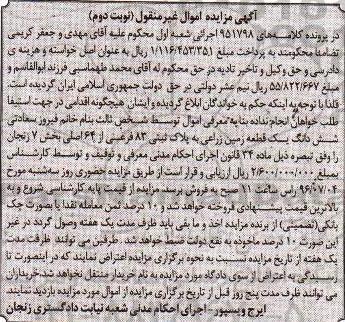 آگهی مزایده اموال غیرمنقول (نوبت دوم)
در پرونده کلاسه های ۹۵۱۷۹۸ اجرائی شعبه اول محکوم علیه آقای مهدی و جعفر کریمی
تضامنا محکومند به پرداخت مبلغ ۱/۱۱۶/۴۵۳/۳۵۱ ریال به عنوان اصل خواسته و هزینه ی
دادرسی و حق وکیل و تاخیر تادیه در حق محکوم له آقای محمد طهماسبی فرزند ابوالقاسم و
مبلغ ۵۵/۸۲۲/۶۶۷ ریال نیم عشر دولتی در حق دولت جمهوری اسلامی ایران گردیده است
فلذا با توجه به اینکه حکم به خواندگان ابلاغ گردیده و ایشان هیچگونه اقدامی در جهت استیفا
طلب خواهان انجام نداده بنابه معرفی اموال توسط شخص ثالث بنام خانم فیروز سعادتی
شش دانگ یک قطعه زمین زراعی به پلاک ثبتی ۸۳ فرعی از ۶۴ اصلی بخش ۷ زنجان
را وفق تبصره ذیل ماده ۳۴ قانون اجرای احکام مدنی معرفی و توقیف و توسط کارشناس
مبلغ ۲/۶۰۰/۰۰۰/۰۰۰ ریال ارزیابی و قرار است از طریق مزایده حضوری روز سه شنبه مورخ
۹۶/۰۷/۰۴ راس ساعت ۱۱ صبح به فروش برسد مزایده از قیمت پایه کارشناسی شروع و به
بالاترین قیمت پیشنهادی فروخته خواهد شد و ۱۰ درصد ثمن معامله نقدا یا بصورت چک
بانکی (تضمینی) از برنده مزایده اخذ و ما بقی باید ظرف مدت یک هفته وصول گردد در غیر
این صورت ۱۰ درصد ماخوذه به نفع دولت ضبط خواهد شد. طرفین می توانند ظرفت مدت
یک هفته از تاریخ مزایده نسبت به نحوه برگزاری مزایده اعتراض نمایند که در اینصورت تا
رسیدگی به اعتراض از سوی دادگاه مورد مزایده به نام خریدار منتقل نخواهد شد. خریداران
می توانند ظرف مدت پنج روز قبل از تاریخ برگزاری مزایده از اموال مورد مزایده بازدید نمایند
ایرج ویسپور - اجرای احکام مدنی شعبه نیابت دادگستری زنجان